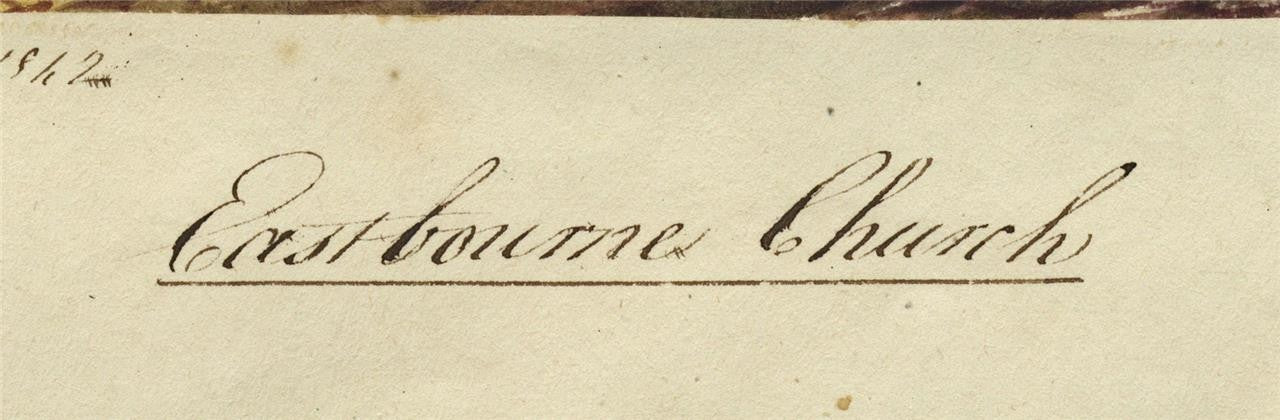 1842
Eastbourne Church